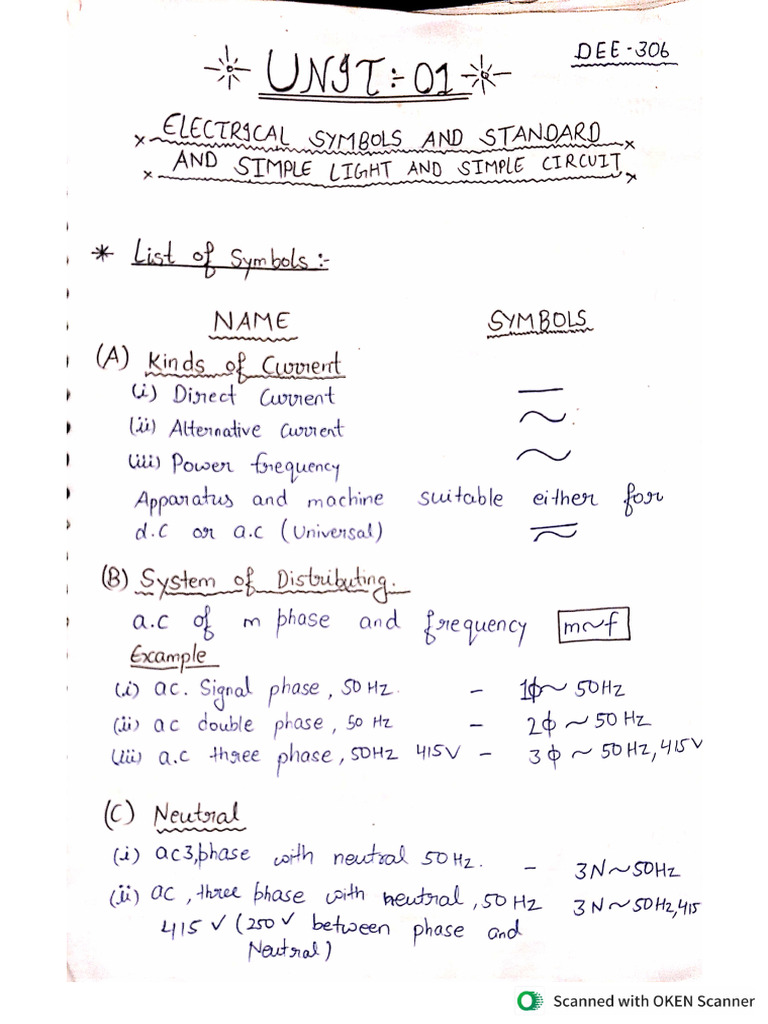 DEE-306
UNIT:-01
ELECTRICAL SYMBOLS AND STANDARD
AND SIMPLE LIGHT AND SIMPLE CIRCUIT
* List of Symbols :-
NAME SYMBOLS
(A) Kinds of Current
(i) Direct Current —
(ii) Alternative Current ~
(iii) Power frequency ~
Apparatus and machine suitable either for
d.c or a.c (Universal) ⎓
(B) System of Distributing.
a.c of m phase and frequency m~f
Example
(i) ac. Signal phase, 50 Hz. - 1ϕ~ 50Hz
(ii) ac double phase, 50 Hz - 2ϕ ~ 50 Hz
(iii) a.c three phase, 50Hz 415V - 3ϕ ~ 50Hz, 415V
(C) Neutral
(i) ac3,phase with neutral 50Hz. - 3N~50Hz
(ii) ac, three phase with neutral, 50 Hz 3N~50Hz,415
415 V (250 V between phase and
Neutral)
Scanned with OKEN Scanner